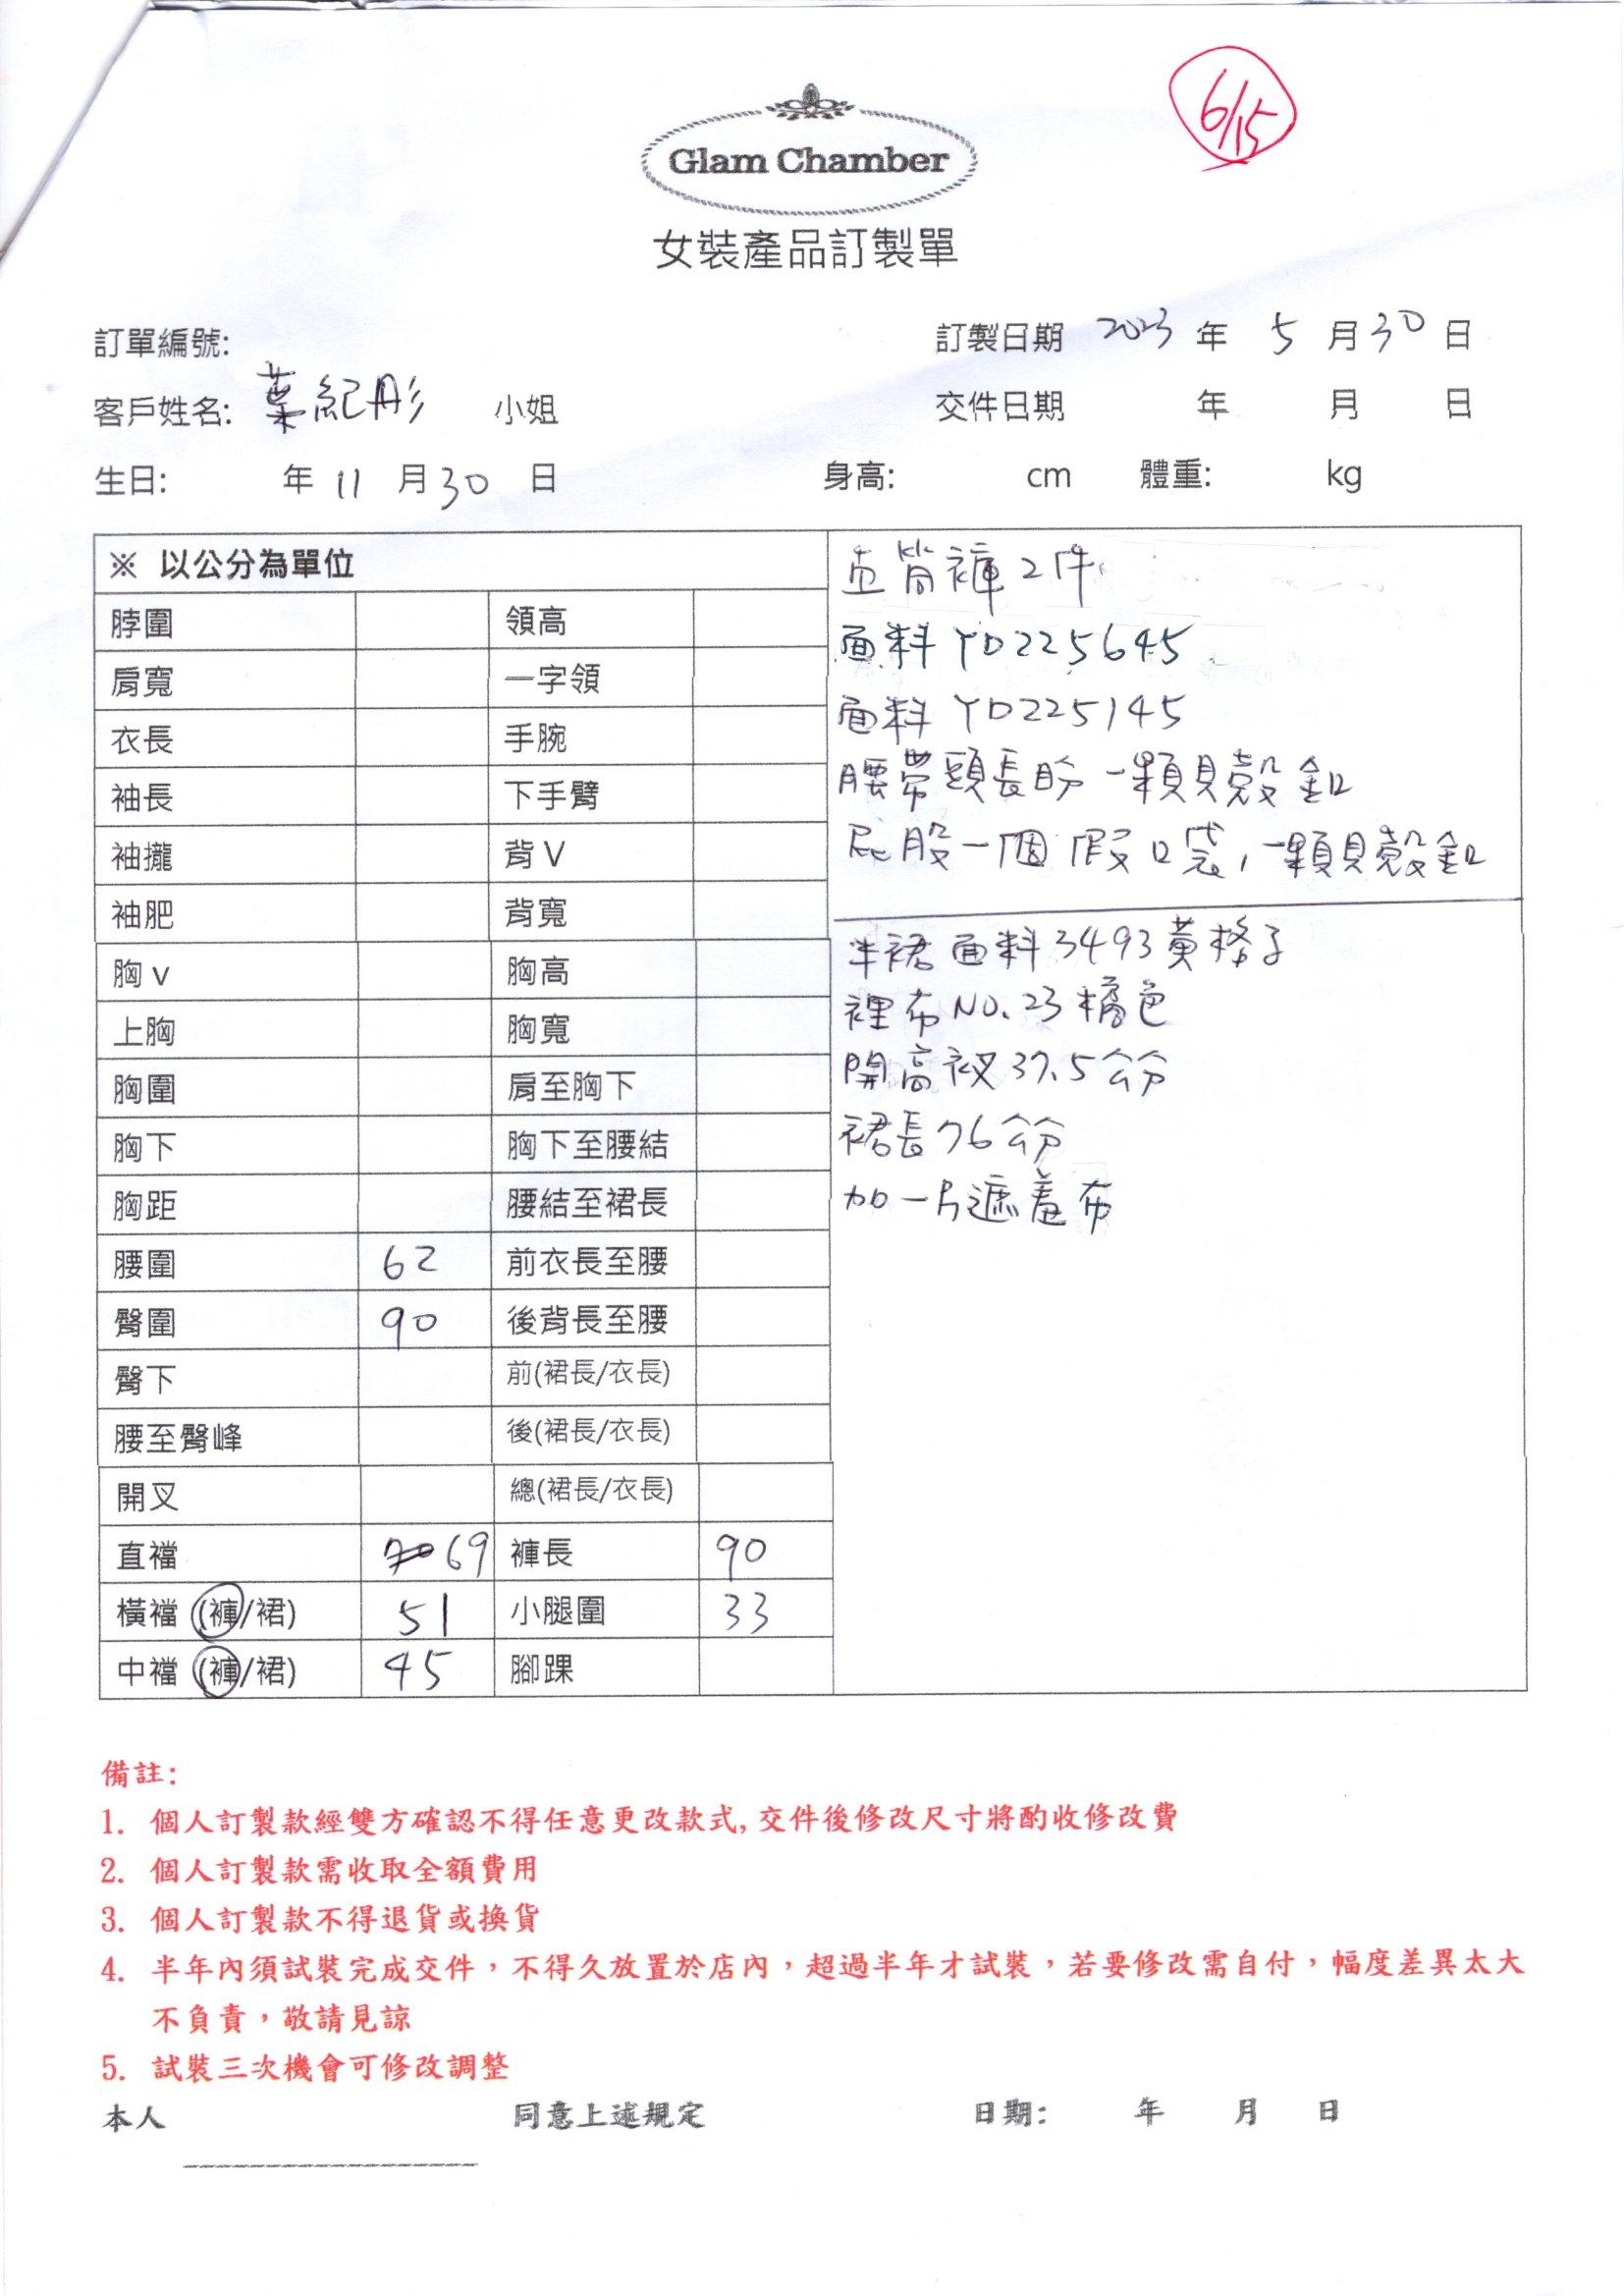 6/15
Glam Chamber
女裝產品訂製單
訂單編號:
訂製日期 2023 年 5 月 30 日
客戶姓名: 葉紀彤 小姐
交件日期 年 月 日
生日: 年 11 月 30 日 身高: cm 體重: kg
※ 以公分為單位
脖圍 領高
肩寬 一字領
衣長 手腕
袖長 下手臂
袖攏 背V
袖肥 背寬
胸v 胸高
上胸 胸寬
胸圍 肩至胸下
胸下 胸下至腰結
胸距 腰結至裙長
腰圍 62 前衣長至腰
臀圍 90 後背長至腰
臀下 前(裙長/衣長)
腰至臀峰 後(裙長/衣長)
開叉 總(裙長/衣長)
直襠 70 69 褲長 90
橫襠 (褲/裙) 51 小腿圍 33
中襠 (褲/裙) 45 腳踝
直筒褲2件
面料 YD225645
面料 YD225145
腰帶頭長 一顆貝殼釦
屁股一個假口袋,一顆貝殼釦
半裙 面料3493黃格子
裡布NO.23橘色
開高衩37.5公分
裙長76公分
加一片遮羞布
備註:
1. 個人訂製款經雙方確認不得任意更改款式,交件後修改尺寸將酌收修改費
2. 個人訂製款需收取全額費用
3. 個人訂製款不得退貨或換貨
4. 半年內須試裝完成交件，不得久放置於店內，超過半年才試裝，若要修改需自付，幅度差異太大
不負責，敬請見諒
5. 試裝三次機會可修改調整
本人 同意上述規定 日期: 年 月 日